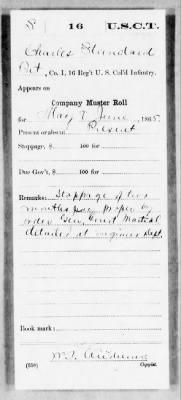 S 16 U.S.C.T.
Charles Standard
Pvt, Co. I, 16 Reg't U. S. Col'd Infantry.
Appears on
Company Muster Roll
for May & June, 1865.
Present or absent Present
Stoppage, $ 100 for
Due Gov't, $ 100 for
Remarks: Stoppage of two
months pay proper by
order Gen. Court Martial
detailed at engineer dept.
Book mark:
(358) Copyist.